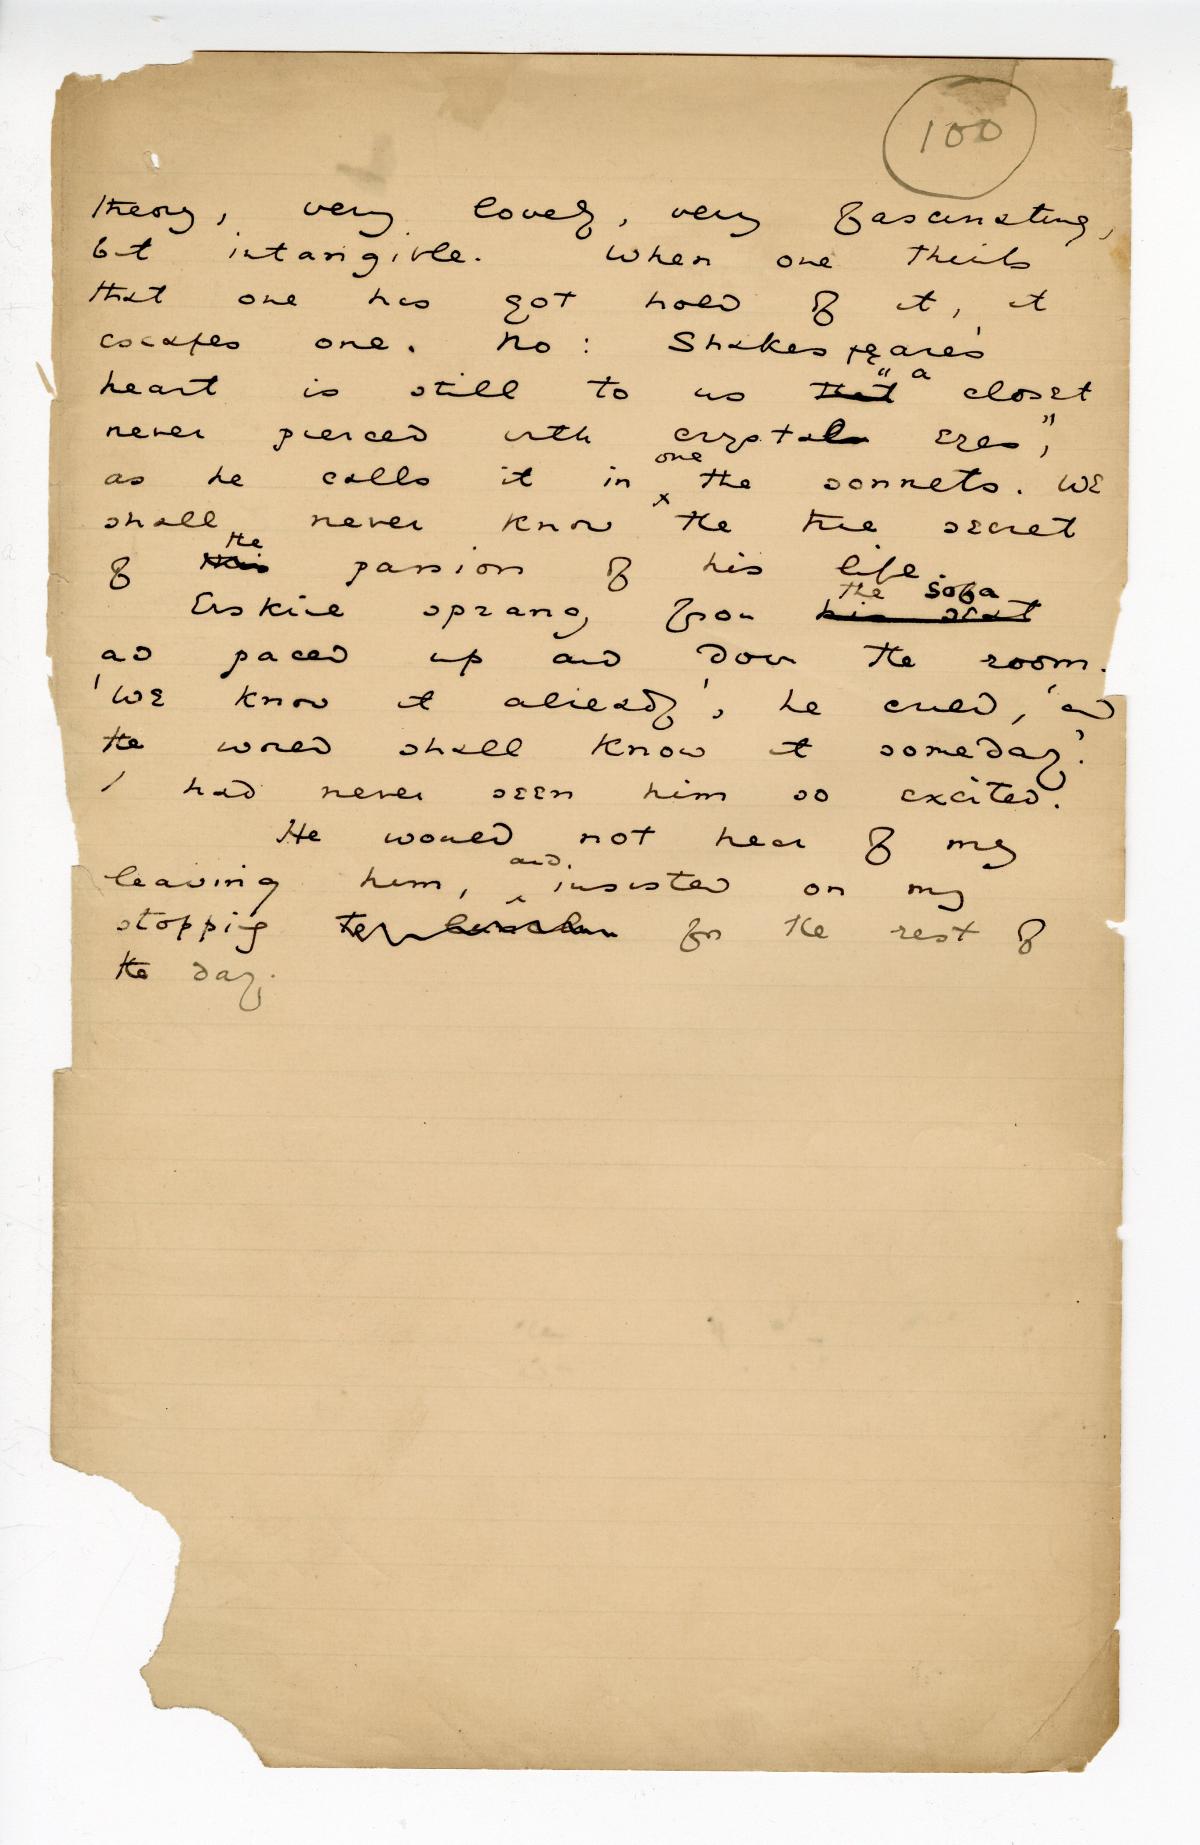 100
theory, very lovely, very fascinating,
but intangible. When one thinks
that one has got hold of it, it
escapes one. No: Shakespeare's
heart is still to us that "a closet
never pierced with crystal eyes",
as he calls it in one the sonnets. We
shall never know the true secret
of this the passion of his life.
Erskine sprang from his seat the sofa
and paced up and down the room.
'We know it already', he cried, 'and
the world shall know it someday'.
I had never seen him so excited.
He would not hear of my
leaving him, and insisted on my
stopping for the rest of
the day.